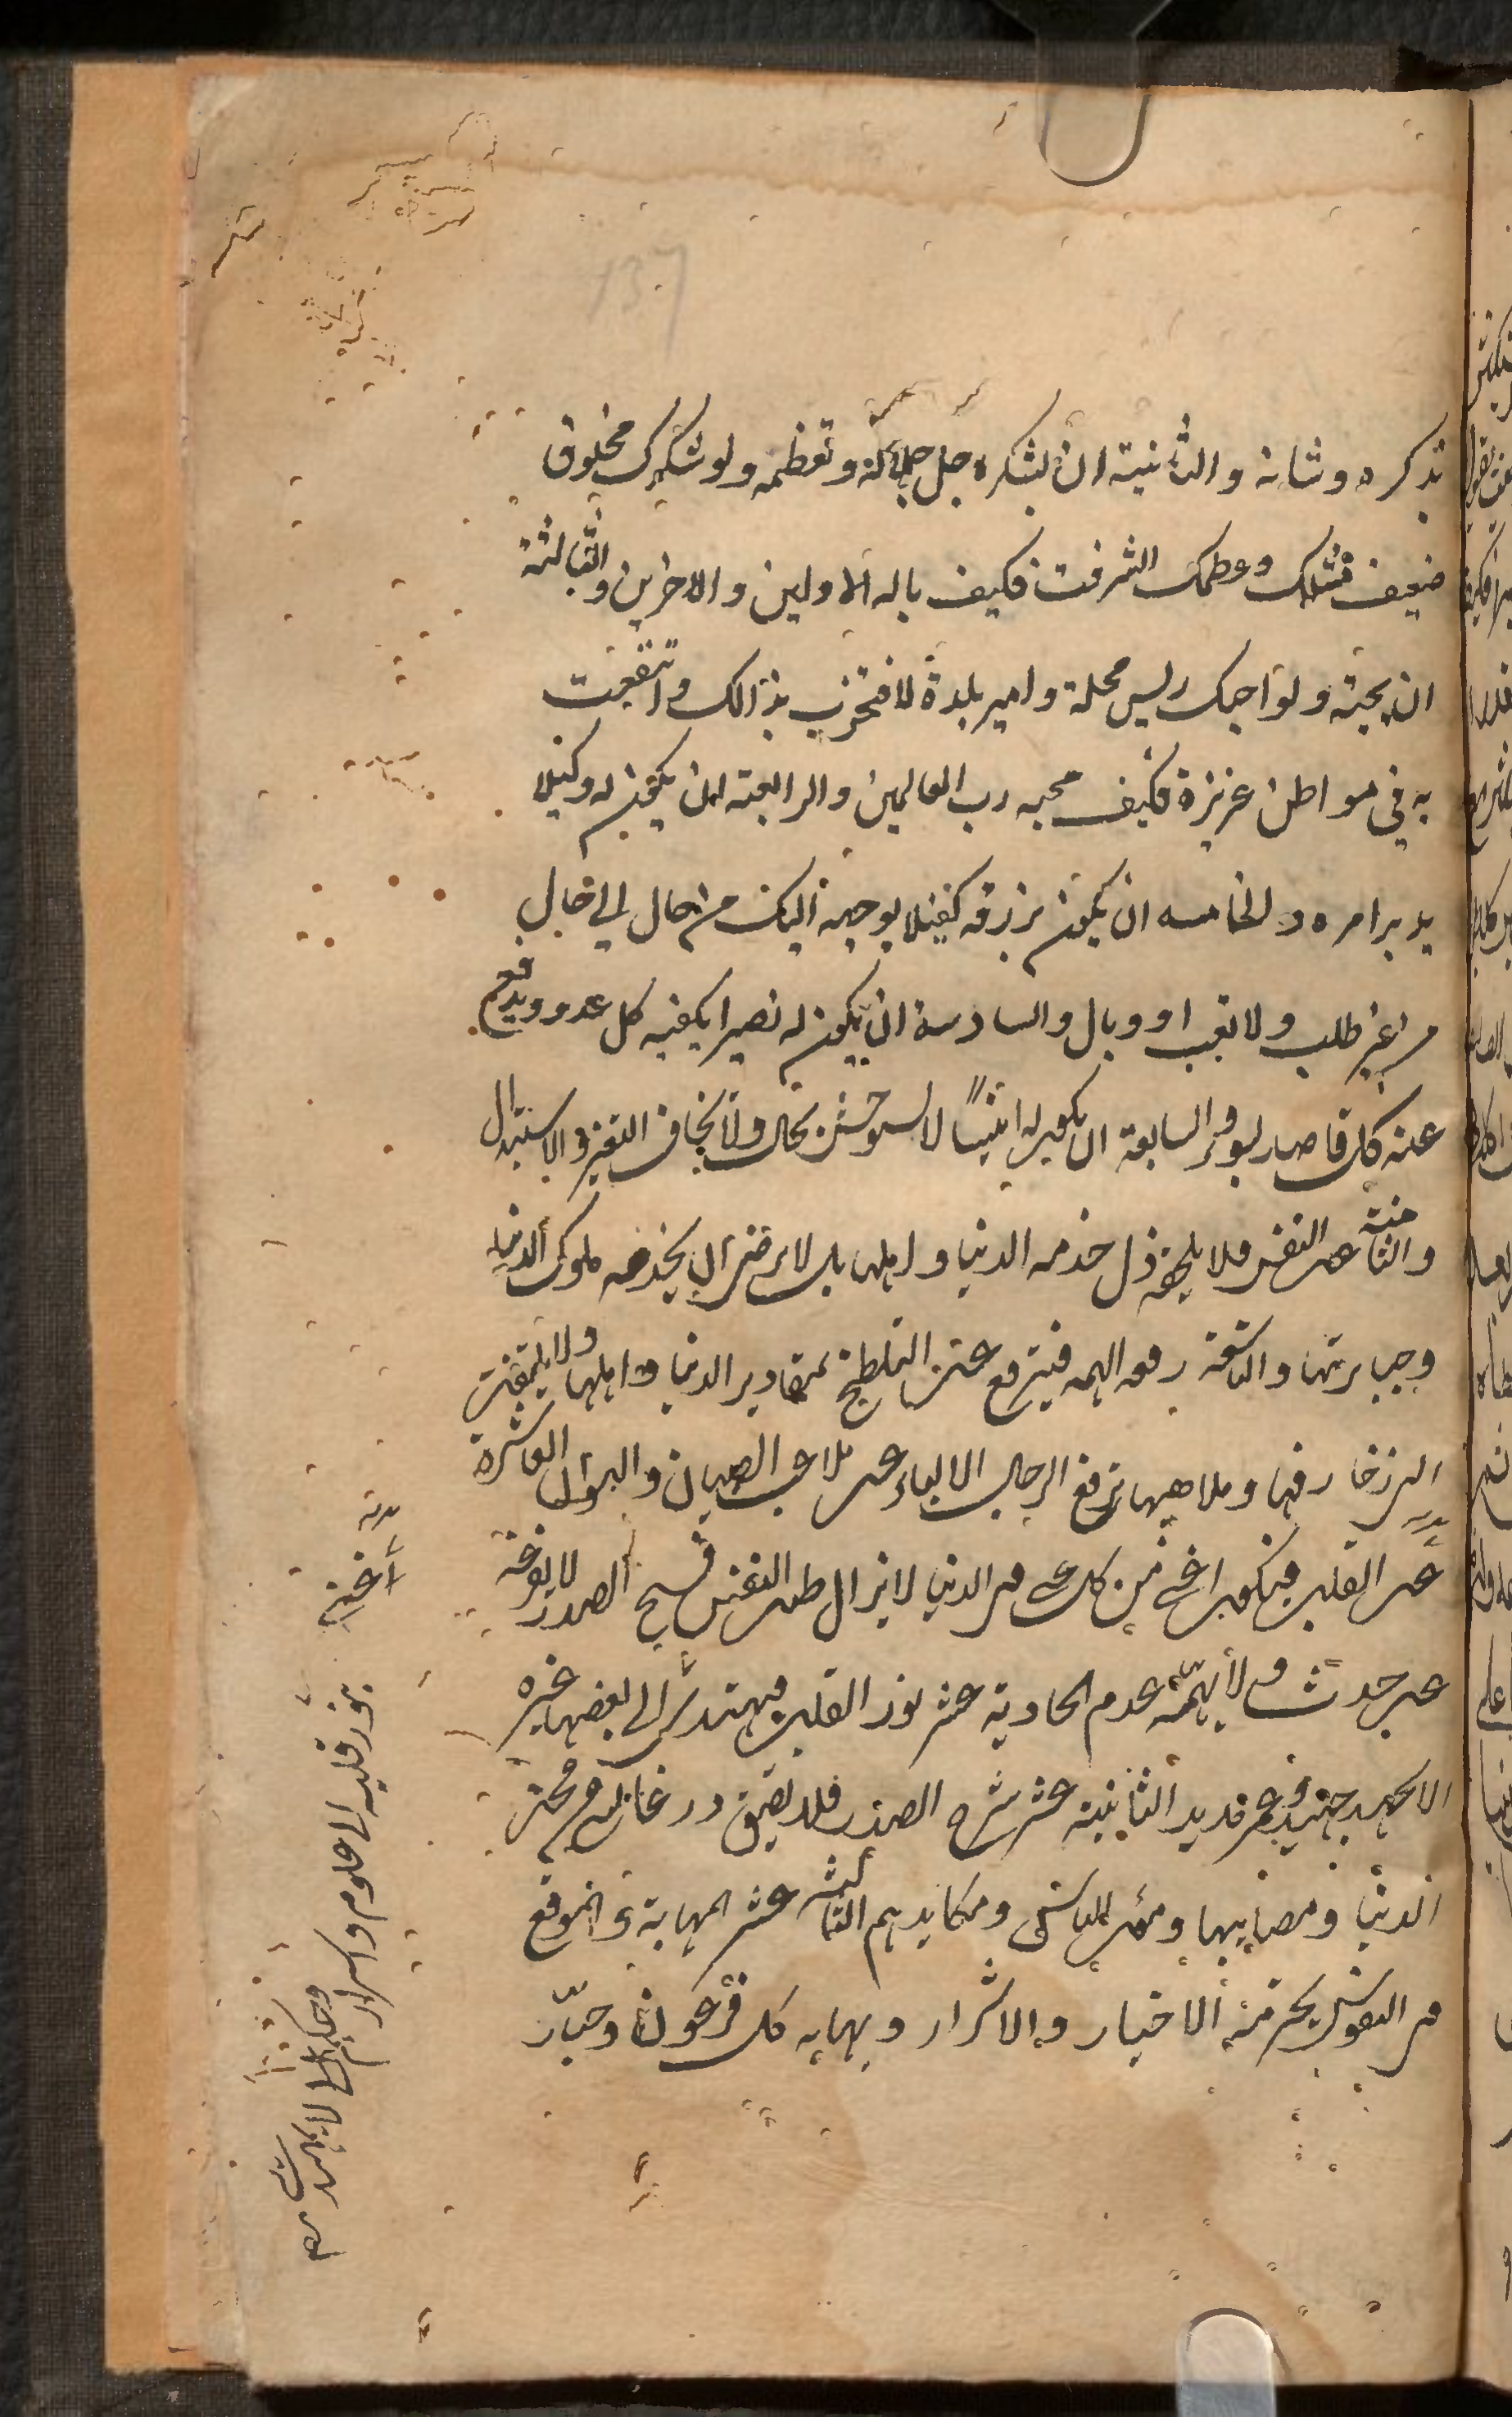 بذكره وثنائه والثانية ان يشكره جل جلاله وتعظمه ولو شكرك مخلوق
ضعيف مثلك وعظمك الشرفت فكيف باله الاولين والاخرين والثالثة
ان يحبه ولو احبك رئيس محلة وامير بلدة لافتخرت بذالك وانتفعت
به في مواطن عزيزة فكيف محبه رب العالمين والرابعة ان يكون له وكيلا
يدبر امره والخامسه ان يكون برزقه كفيلا يوجهه اليك من حال الي حال
من غير طلب ولا تعب او وبال والسادسة ان يكون له نصيرا يكفيه كل عدو ويدفع
عنه كل قاصد بسوء والسابعة ان يكون له انيسا لا يستوحش بحال ولا يخاف التغير والاستبدال
والثامنة عز النفس فلا يلحقه ذل خدمه الدنيا واهلها بل لا يرضى ان يخدمه ملوك الدنيا
وجبابرتها والتاسعة رفعه الهمه فيترفع عن التلطخ بمقادير الدنيا واهلها ولا يلتفت
الي زخارفها وملاهيها ترفع الرجال الالباء عن ملاعب الصبيان والنسوان العاشرة
غنى القلب فيكون اغنى من كل غني في الدنيا لا يزال طيب النفس فسيح الصدر لا يفزعه
عن حدث ولا يهمه عدم الحادية عشر نور القلب فيهتدي الي بعضها غيره
الا بجهد جهيد وعمر مديد الثانية عشر شرح الصدر فلا يضيق ذرعا بشي من محن
الدنيا ومصايبها ومؤن الناس ومكايدهم الثالثة عشر المهابة والموقع
في النفوس يحترمه الاخيار والاشرار ويهابه كل فرعون وجبار
بنور قلبه الى علوم واسرار
وحكم لا يهتدي